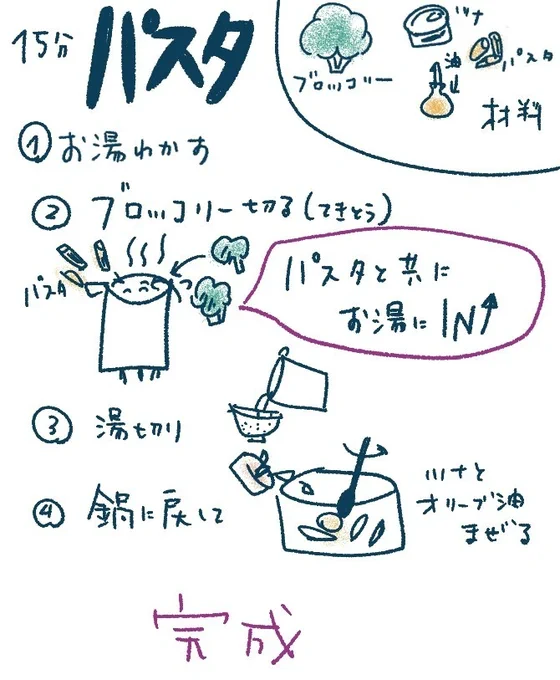 15分 パスタ
ブロッコリー
ツナ
パスタ
油
材料
① お湯わかす
② ブロッコリー切る(てきとう)
パスタ
パスタと共に
お湯にIN↑
③ 湯切り
④ 鍋に戻して
ツナと
オリーブ油
まぜる
完成